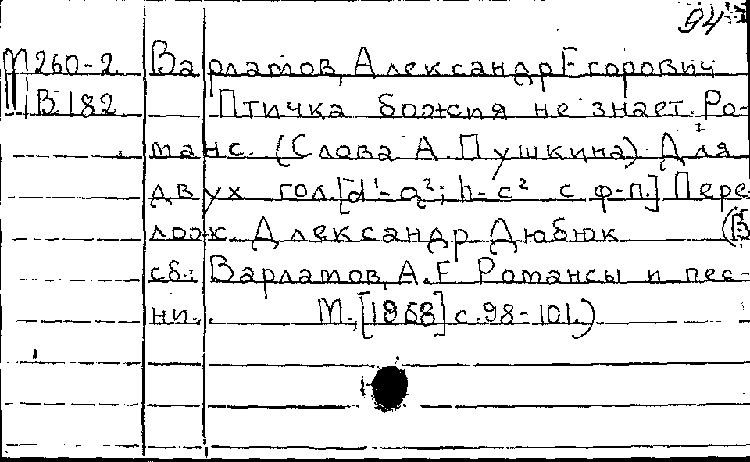 94
М 260-2 Варламов, Александр Егорович
В 182 Птичка божия не знает. Ро-
манс. (Слова А. Пушкина) Для
двух гол. [d¹-g²; h-c² с ф-п.] Пере-
лож. Александр Дюбюк (В
сб.: Варламов, А.Е. Романсы и пес-
ни.. М., [1968] с. 98-101.)